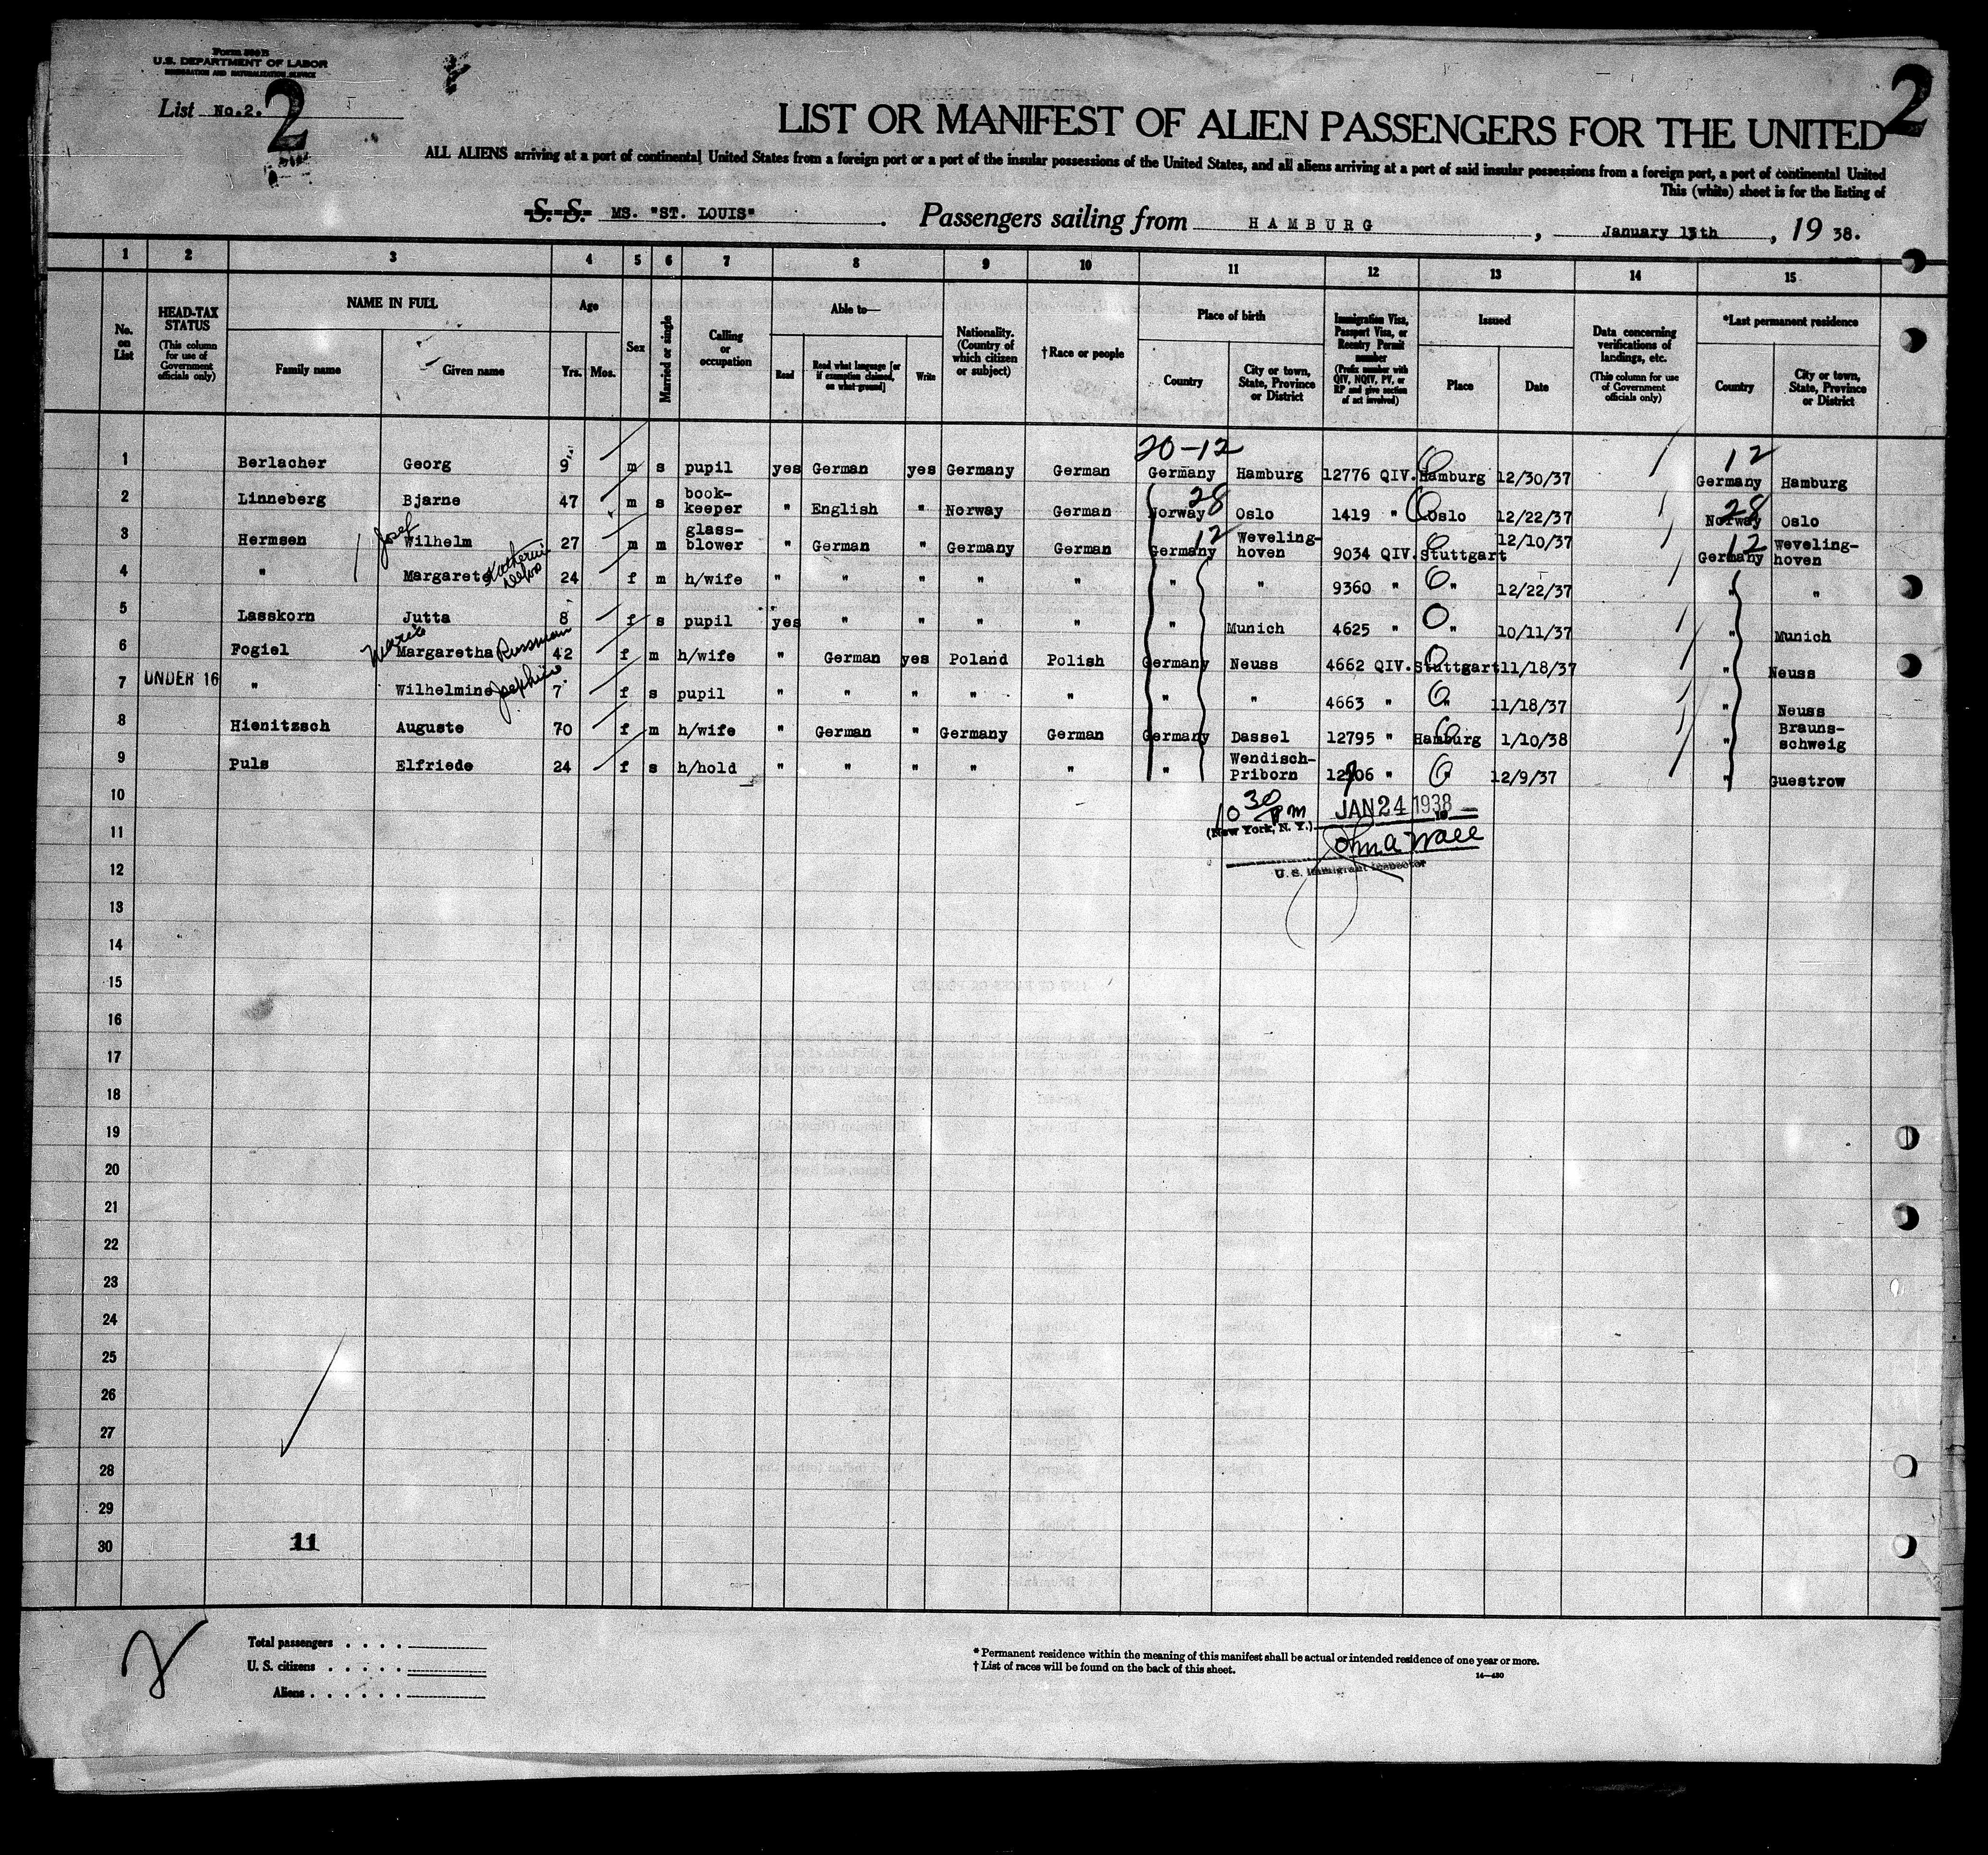 Form 500 B
U.S. DEPARTMENT OF LABOR
IMMIGRATION AND NATURALIZATION SERVICE
List No.2. 2
2
LIST OR MANIFEST OF ALIEN PASSENGERS FOR THE UNITED
ALL ALIENS arriving at a port of continental United States from a foreign port or a port of the insular possessions of the United States, and all aliens arriving at a port of said insular possessions from a foreign port, a port of continental United
This (white) sheet is for the listing of
S. S. MS. "ST. LOUIS". Passengers sailing from HAMBURG, January 13th, 1938.
1 2 3 4 5 6 7 8 9 10 11 12 13 14 15
No. on List
HEAD-TAX STATUS (This column for use of Government officials only)
NAME IN FULL
Family name
Given name
Age
Yrs. Mos.
Sex
Married or single
Calling or occupation
Able to—
Read
Read what language [or if exemption claimed, on what ground]
Write
Nationality. (Country of which citizen or subject)
†Race or people
Place of birth
Country
City or town, State, Province or District
Immigration Visa, Passport Visa, or Reentry Permit number (Prefix number with QIV, NQIV, PV, or RP and give section of act involved)
Issued
Place
Date
Data concerning verifications of landings, etc. (This column for use of Government officials only)
*Last permanent residence
Country
City or town, State, Province or District
20-12 12
1 Berlacher Georg 9 m s pupil yes German yes Germany German Germany Hamburg 12776 QIV. Hamburg 12/30/37 Germany Hamburg
28 28
2 Linneberg Bjarne 47 m s book-keeper " English " Norway German Norway Oslo 1419 " Oslo 12/22/37 Norway Oslo
Josef 12 12
3 Hermsen Wilhelm 27 m m glass-blower " German " Germany German Germany Weveling-hoven 9034 QIV. Stuttgart 12/10/37 Germany Weveling-hoven
4 " Margarete 24 f m h/wife " " " " " " " 9360 " " 12/22/37 " "
5 Lasskorn Jutta 8 f s pupil yes " " " " " Munich 4625 " " 10/11/37 " Munich
6 Fogiel Marie Margaretha Russmann 42 f m h/wife " German yes Poland Polish Germany Neuss 4662 QIV. Stuttgart 11/18/37 " Neuss
7 UNDER 16 " Wilhelmine Josephine 7 f s pupil " " " " " " " 4663 " " 11/18/37 " Neuss
8 Hienitzsch Auguste 70 f m h/wife " German " Germany German Germany Dassel 12795 " Hamburg 1/10/38 " Brauns-schweig
9 Puls Elfriede 24 f s h/hold " " " " " " Wendisch-Priborn 12906 " " 12/9/37 " Guestrow
10
10 30 pm JAN 24 1938
11
(New York, N. Y.)
John A Wall
12
U. S. Immigrant Inspector
13
14
15
16
17
18
19
20
21
22
23
24
25
26
27
28
29
30 11
Total passengers . . . .
U. S. citizens . . . . .
Aliens . . . . . .
* Permanent residence within the meaning of this manifest shall be actual or intended residence of one year or more.
† List of races will be found on the back of this sheet.
14—430